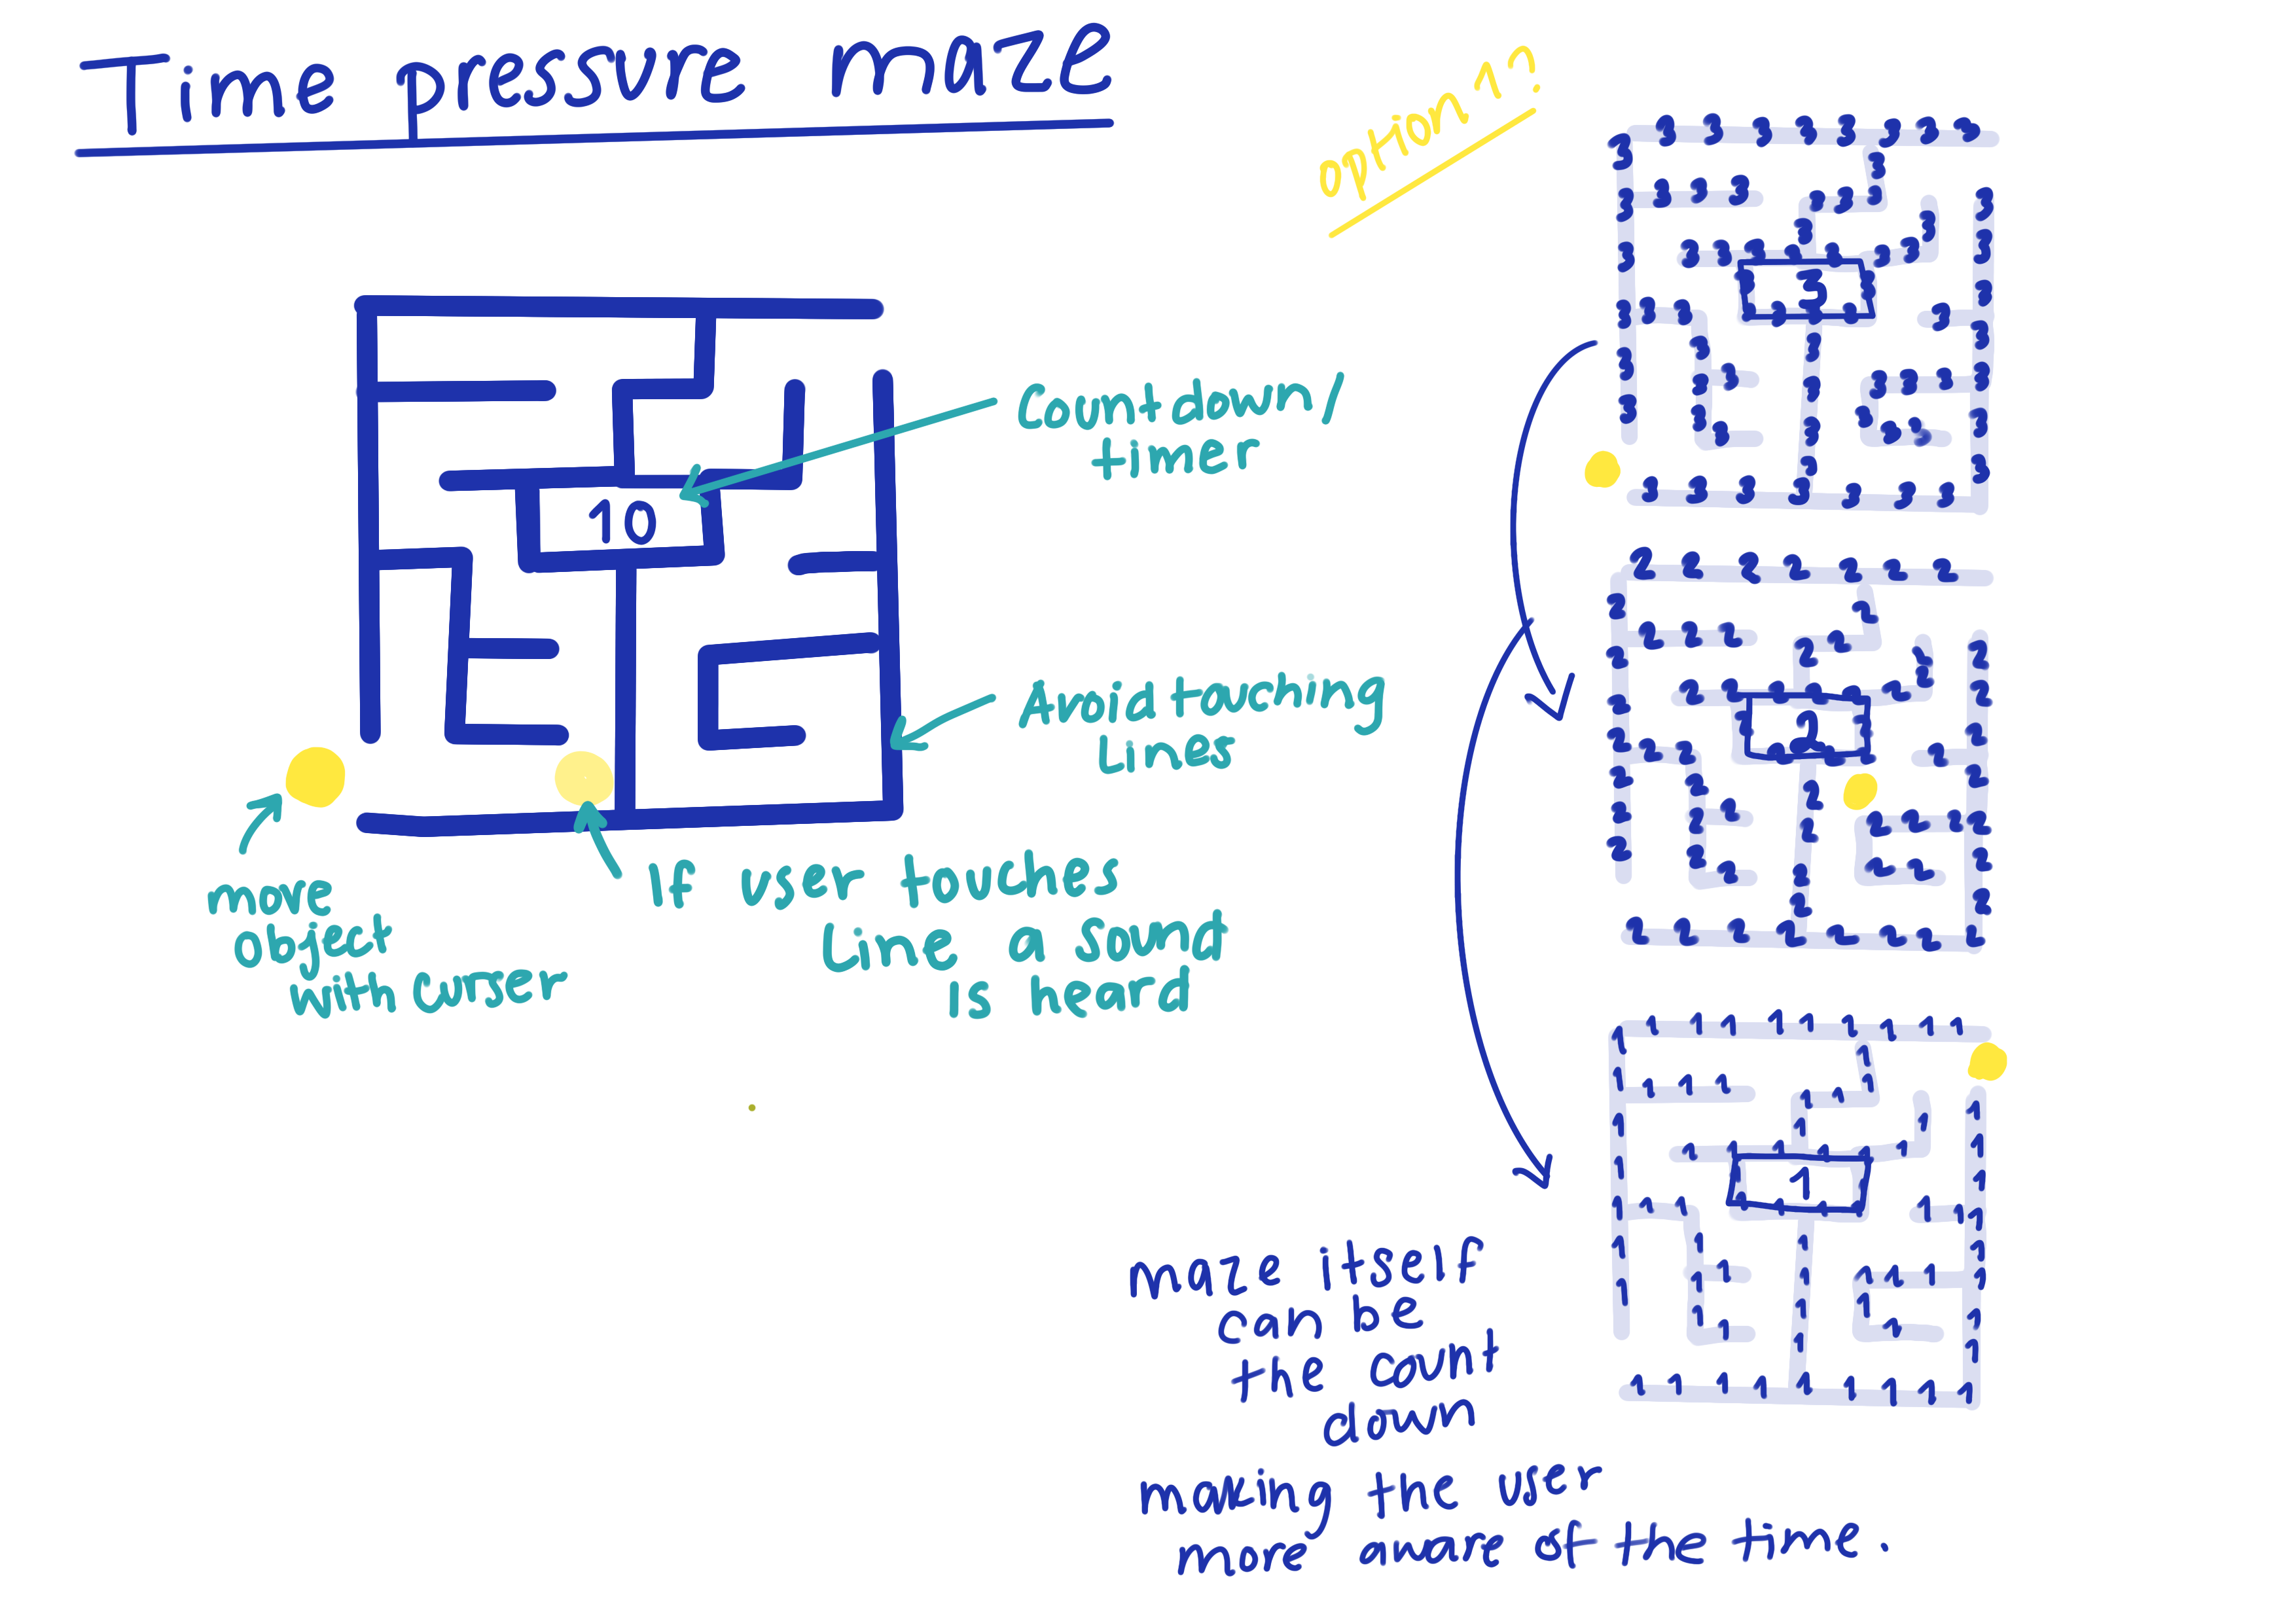 Time pressure maze
option 1?
10
Countdown/
timer
Avoid touching
Lines
move
object
with curser
If user touches
Line a sound
is heard
3
2
1
maze itself
can be
the count
down
making the user
more aware of the time.